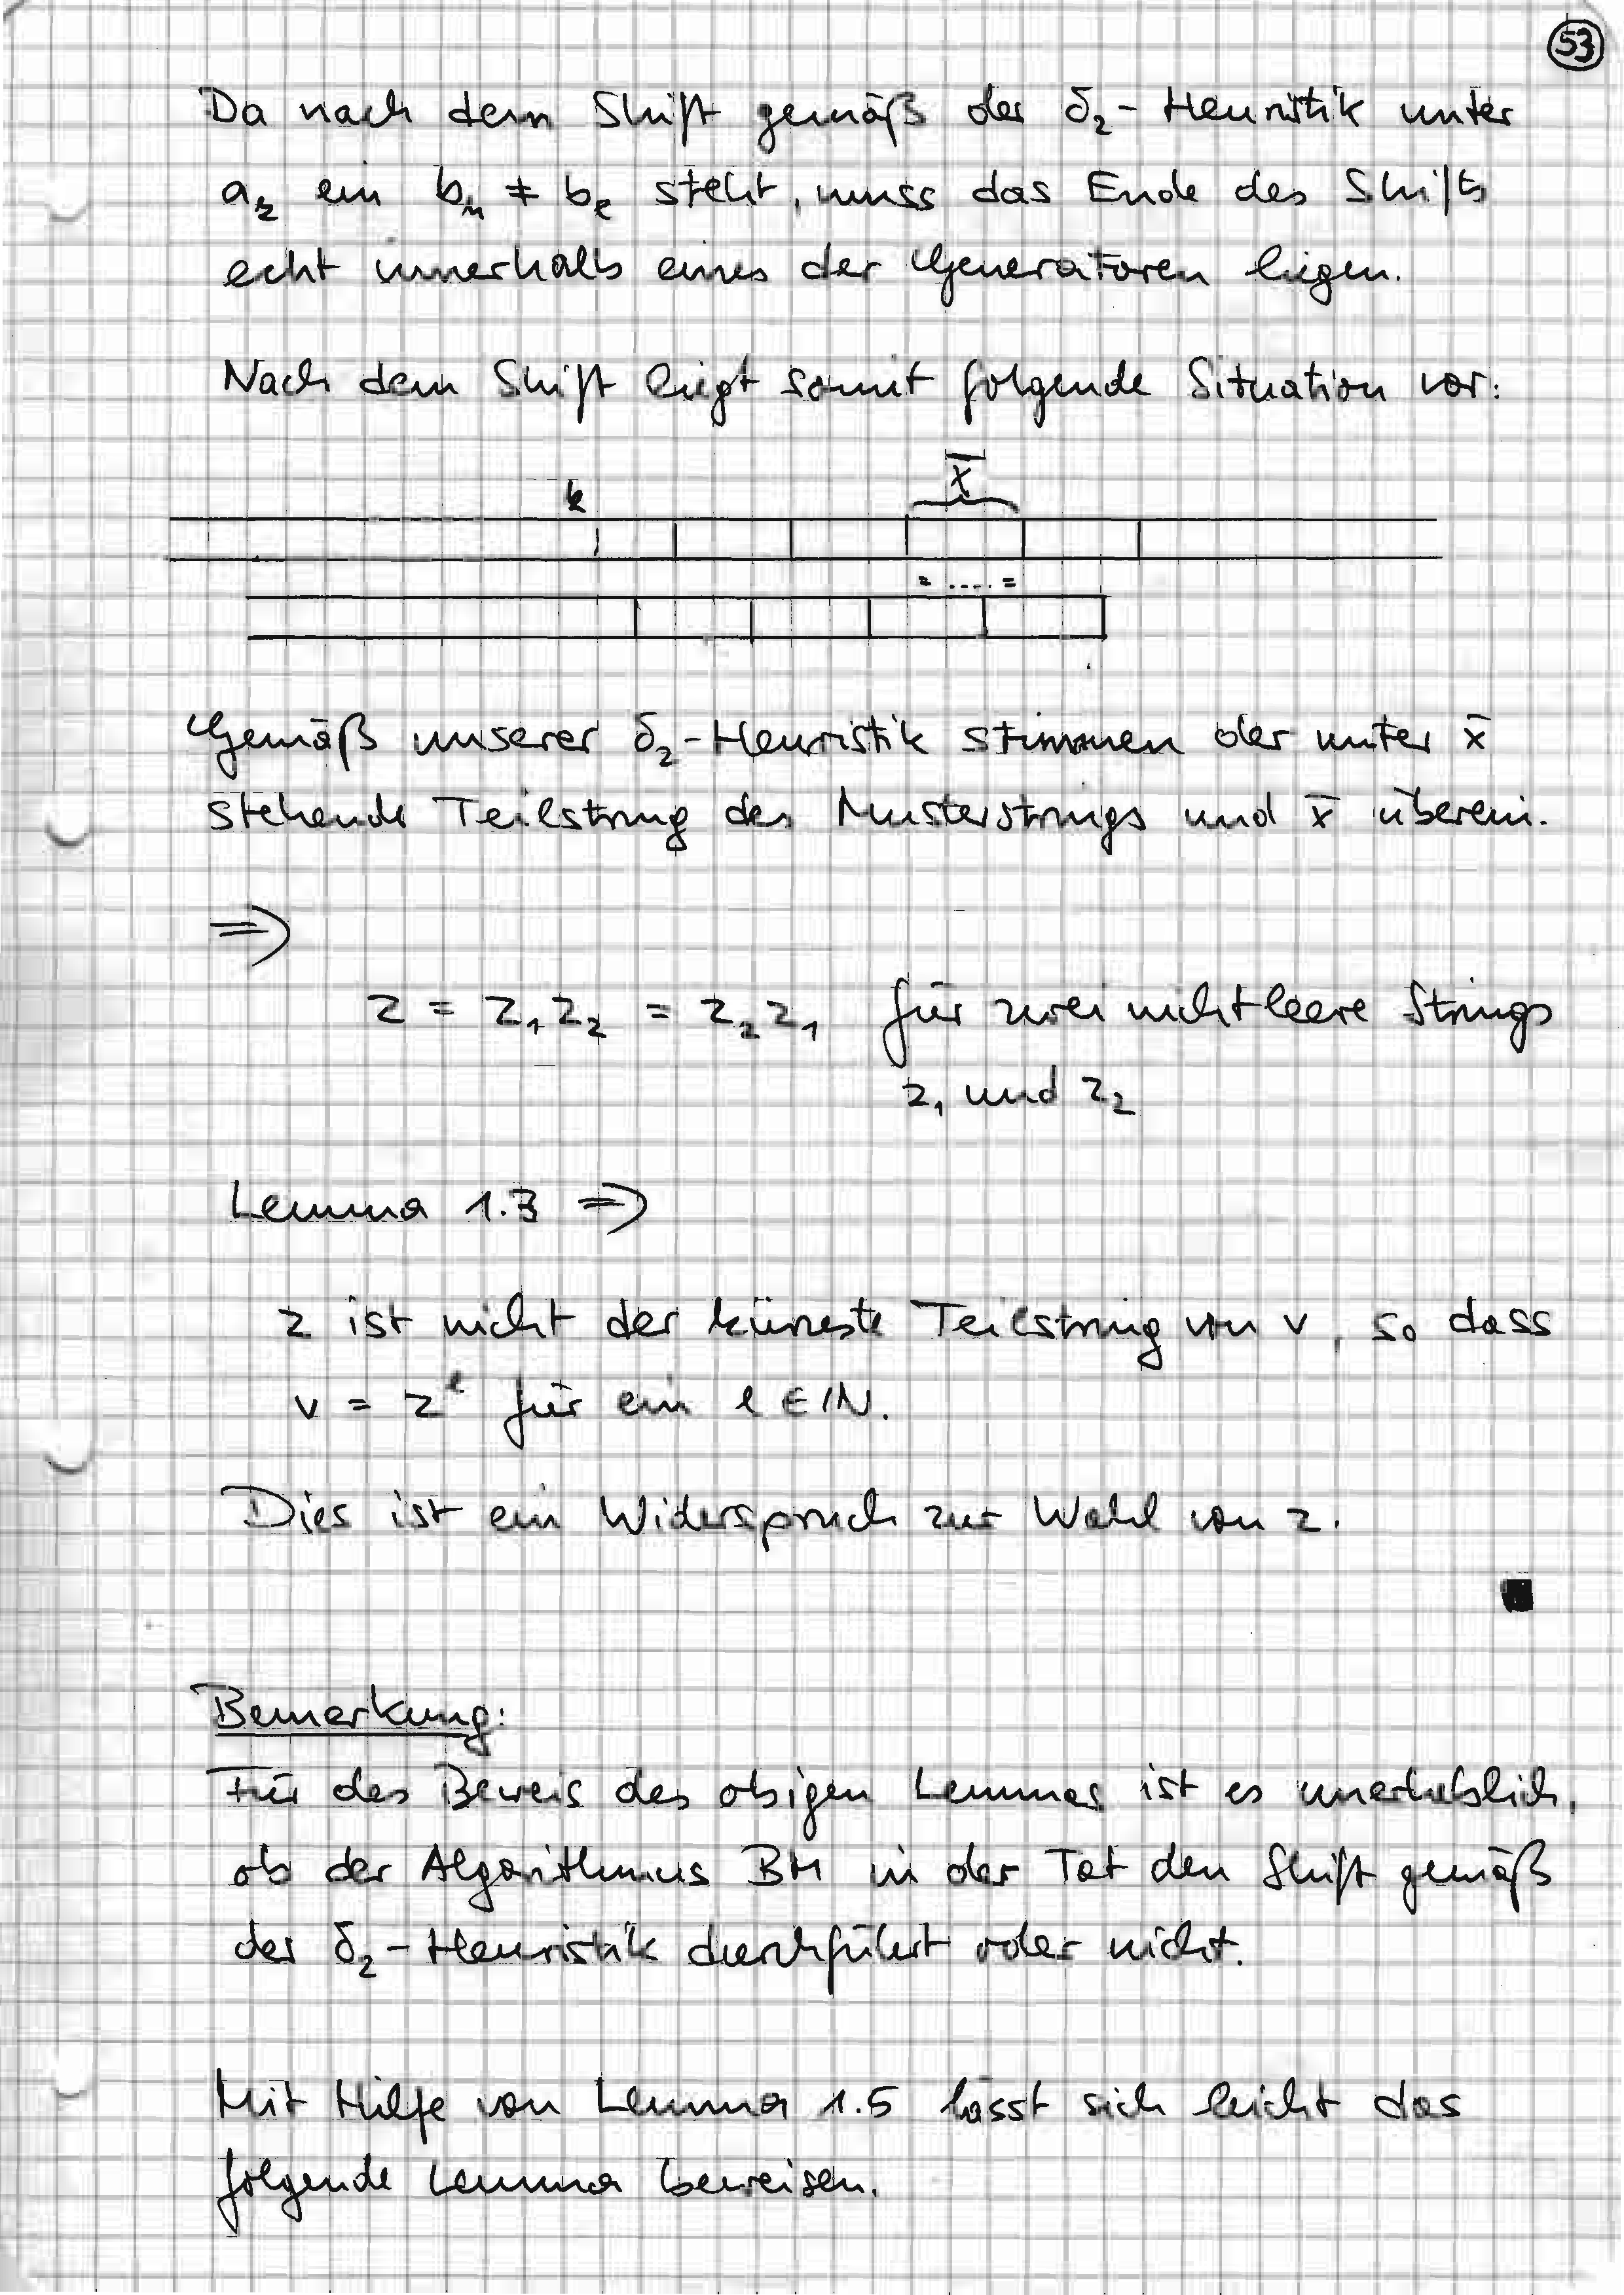 53
Da nach dem Shift gemäß der δ₂-Heuristik unter
a_k ein b_n ≠ b_l steht, muss das Ende des Shifts
echt innerhalb eines der Generatoren liegen.
Nach dem Shift liegt somit folgende Situation vor:
x̄
k
= .... =
Gemäß unserer δ₂-Heuristik stimmen der unter x̄
stehende Teilstring des Musterstrings und x̄ überein.
⇒
z = z₁z₂ = z₂z₁ für zwei nichtleere Strings
z₁ und z₂
Lemma 1.3 ⇒
z ist nicht der kürzeste Teilstring von v, so dass
v = zˡ für ein l ∈ ℕ.
Dies ist ein Widerspruch zur Wahl von z.
Bemerkung:
Für den Beweis des obigen Lemmas ist es unerheblich,
ob der Algorithmus BM in der Tat den Shift gemäß
der δ₂-Heuristik durchführt oder nicht.
Mit Hilfe von Lemma 1.5 lässt sich leicht das
folgende Lemma beweisen.